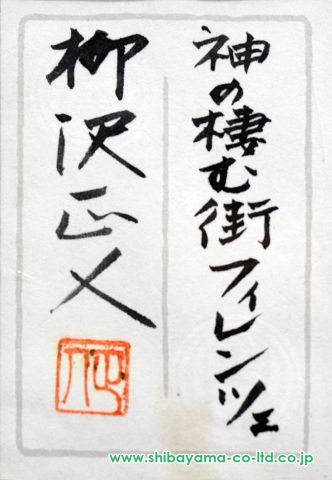 神の棲む街フィレンツェ
柳沢正人
www.shibayama-co-ltd.co.jp